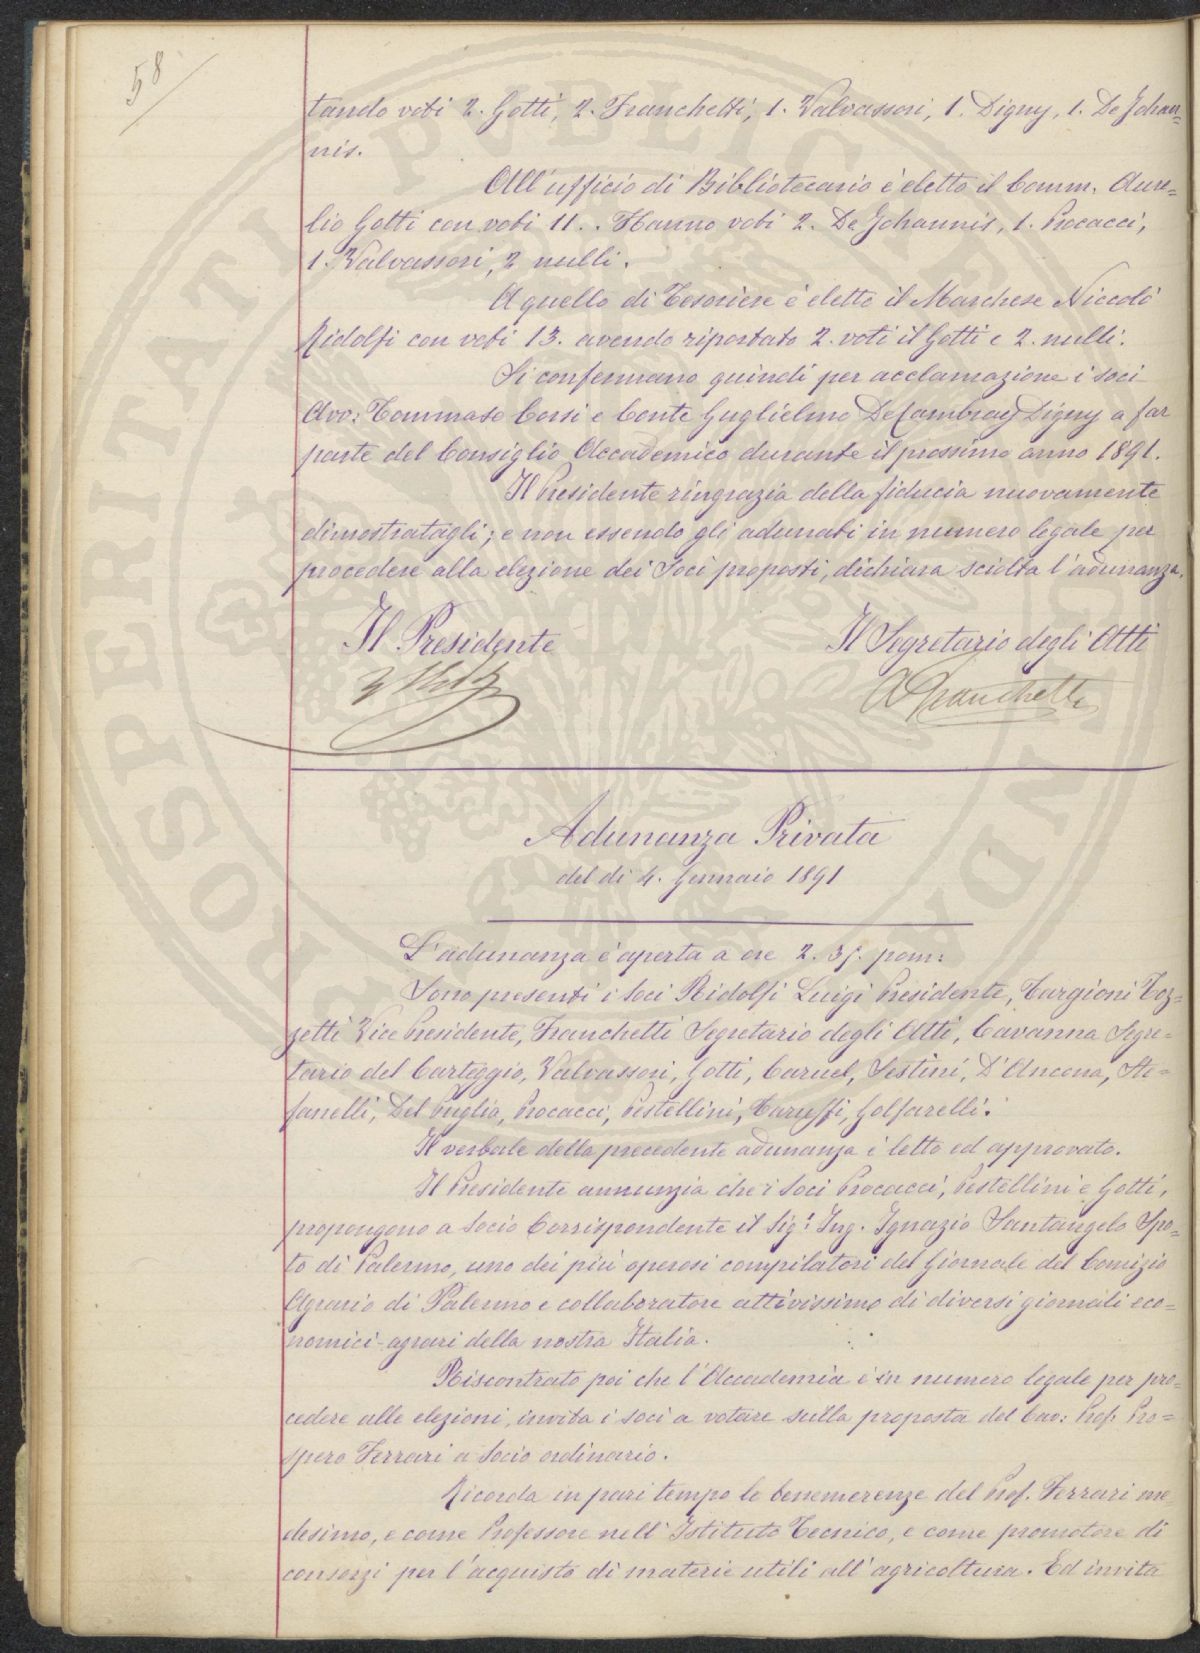 58
tando voti 2. Gotti, 2. Franchetti, 1. Valvassori, 1. Digny, 1. De Johan=
nis.
All'ufficio di Bibliotecario è eletto il Comm. Aure=
lio Gotti con voti 11.. Hanno voti 2. De Johannis, 1. Procacci,
1. Valvassori, 2 nulli.
A quello di Tesoriere è eletto il Marchese Niccolò
Ridolfi con voti 13. avendo riportato 2. voti il Gotti e 2. nulli.
Si confermano quindi per acclamazione i soci
Avv: Tommaso Corsi e Conte Guglielmo De Cambray Digny a far
parte del Consiglio Accademico durante il prossimo anno 1891.
Il Presidente ringrazia della fiducia nuovamente
dimostratagli; e non essendo gli adunati in numero legale per
procedere alla elezione dei Soci proposti, dichiara sciolta l'adunanza.
Il Presidente
Il Segretario degli Atti
A Franchetti
Adunanza Privata
del dì 4. Gennaio 1891
L'adunanza è aperta a ore 2. 35. pom:
Sono presenti i Soci Ridolfi Luigi Presidente, Targioni Toz=
zetti Vice Presidente, Franchetti Segretario degli Atti, Cavanna Segre=
tario del Carteggio, Valvassori, Gotti, Caruel, Sestini, D'Ancona, Ste=
fanelli, Del Puglia, Procacci, Pestellini, Taruffi, Golfarelli.
Il verbale della precedente adunanza è letto ed approvato.
Il Presidente annunzia che i Soci Procacci, Pestellini e Gotti,
propongono a Socio Corrispondente il Sigr. Ing. Ignazio Santangelo Spo=
to di Palermo, uno dei più operosi compilatori del Giornale del Comizio
Agrario di Palermo e collaboratore attivissimo di diversi giornali eco=
nomici-agrari della nostra Italia.
Riscontrato poi che l'Accademia è in numero legale per pro=
cedere alle elezioni, invita i soci a votare sulla proposta del Cav: Prof. Pro=
spero Ferrari a Socio ordinario.
Ricorda in pari tempo le benemerenze del Prof. Ferrari me
desimo, e come Professore nell'Istituto Tecnico, e come promotore di
consorzi per l'acquisto di materie utili all'agricoltura. Ed invita
PROSPERITATI PUBLICAE